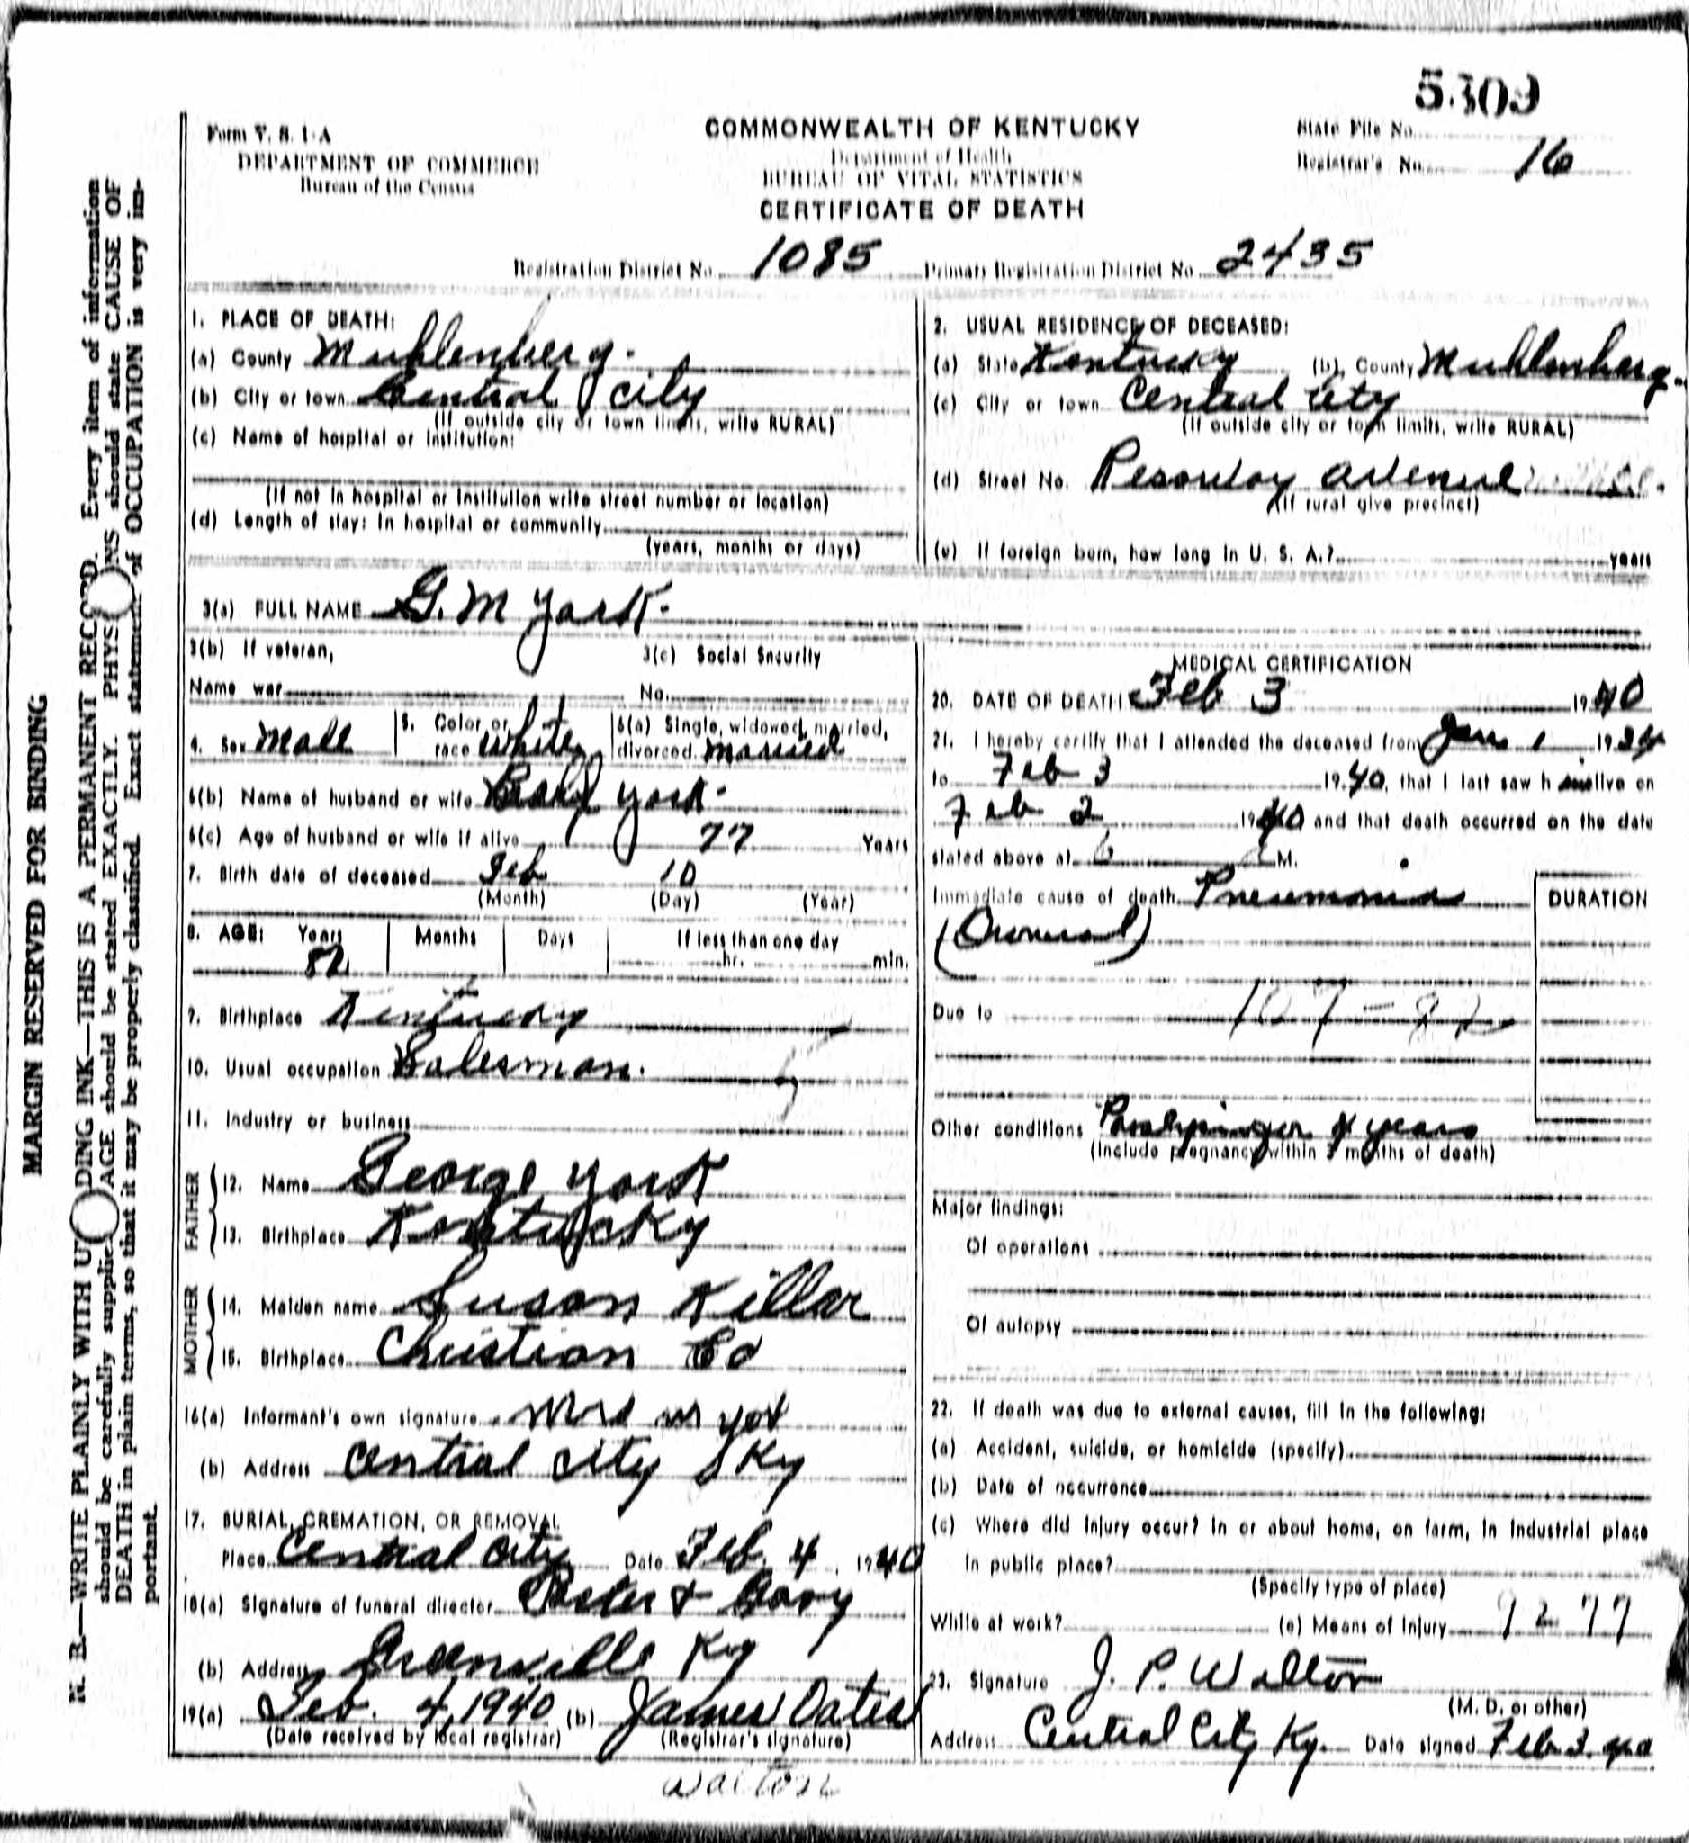 5309
Form V. S. 1-A
DEPARTMENT OF COMMERCE
Bureau of the Census
COMMONWEALTH OF KENTUCKY
Department of Health
BUREAU OF VITAL STATISTICS
CERTIFICATE OF DEATH
State File No.
Registrar's No. 16
Registration District No. 1085 Primary Registration District No. 2435
MARGIN RESERVED FOR BINDING
N. B.—WRITE PLAINLY WITH U DING INK—THIS IS A PERMANENT RECORD. Every item of information
should be carefully supplie AGE should be stated EXACTLY. PHYS NS should state CAUSE OF
DEATH in plain terms, so that it may be properly classified. Exact statement of OCCUPATION is very im-
portant.
1. PLACE OF DEATH:
(a) County Muhlenberg.
(b) City or town Central City
(If outside city or town limits, write RURAL)
(c) Name of hospital or institution:
(If not in hospital or institution write street number or location)
(d) Length of stay: In hospital or community
(years, months or days)
2. USUAL RESIDENCE OF DECEASED:
(a) State Kentucky (b) County Muhlenberg.
(c) City or town Central City
(If outside city or town limits, write RURAL)
(d) Street No. avenue
(If rural give precinct)
(e) If foreign born, how long in U. S. A.? years
3(a) FULL NAME G. M York.
3(b) If veteran,
Name war
3(c) Social Security
No.
4. Sex Male
5. Color or
race White
6(a) Single, widowed, married,
divorced. Married
6(b) Name of husband or wife York.
6(c) Age of husband or wife if alive 77 Years
7. Birth date of deceased Feb 10
(Month) (Day) (Year)
8. AGE: Years Months Days If less than one day
82 hr. min.
9. Birthplace Kentucky
10. Usual occupation Salesman.
11. Industry or business
FATHER
12. Name George York
13. Birthplace Kentucky
MOTHER
14. Maiden name Susan Killar
15. Birthplace Christian Co
16(a) Informant's own signature Mrs
(b) Address Central City Ky
17. BURIAL, CREMATION, OR REMOVAL
Place Central City Date Feb. 4, 1940
18(a) Signature of funeral director &
(b) Address Greenville Ky
19(a) Feb. 4, 1940 (b) James Oates
(Date received by local registrar) (Registrar's signature)
Walton
MEDICAL CERTIFICATION
20. DATE OF DEATH Feb 3 1940
21. I hereby certify that I attended the deceased from Jan 1 1934
to Feb 3 1940, that I last saw h im alive on
Feb 2 1940 and that death occurred on the date
stated above at 6 M.
Immediate cause of death Pneumonia
DURATION
Due to 107-82
Other conditions 4 years
(include pregnancy within 3 months of death)
Major findings:
Of operations
Of autopsy
22. If death was due to external causes, fill in the following:
(a) Accident, suicide, or homicide (specify)
(b) Date of occurrence
(c) Where did injury occur? In or about home, on farm, in industrial place
in public place?
(Specify type of place)
While at work? (e) Means of Injury 9277
23. Signature J. P. Walton
(M. D. or other)
Address Central City Ky. Date signed Feb 3 40